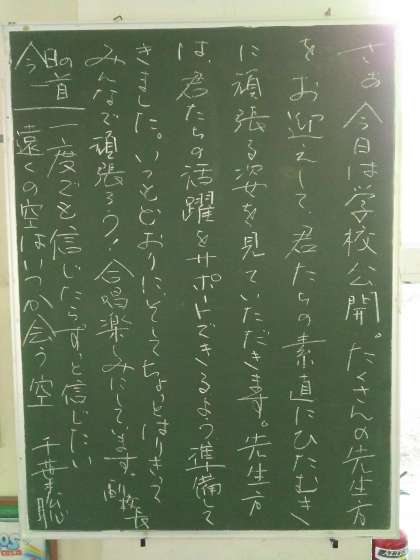 さあ今日は学校公開。たくさんの先生方
をお迎えして、君たちの素直にひたむき
に頑張る姿を見ていただきます。先生方
は、君たちの活躍をサポートできるよう準備して
きました。いつもどおりに、そしてちょっとはりきって
みんなで頑張ろう！合唱楽しみにしています。副校長
今日の一首
一度でも信じたらずっと信じたい
遠くの空はいつか会う空 千葉聡